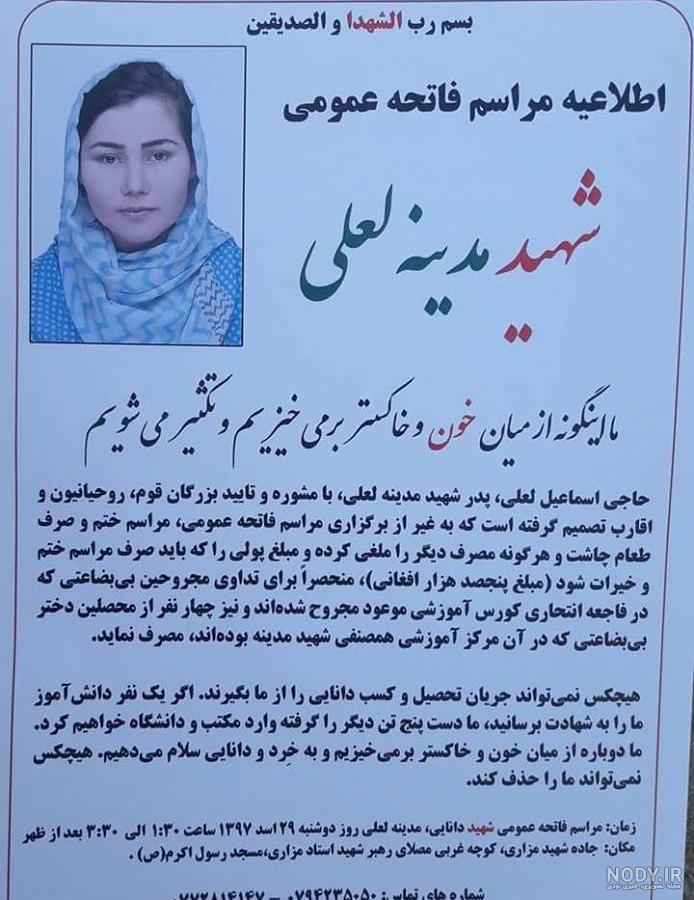 بسم رب الشهدا و الصدیقین
اطلاعیه مراسم فاتحه عمومی
شهید مدینه لعلی
ما اینگونه از میان خون و خاکستر برمی خیزیم و تکثیر می شویم
حاجی اسماعیل لعلی، پدر شهید مدینه لعلی، با مشوره و تایید بزرگان قوم، روحیانیون و
اقارب تصمیم گرفته است که به غیر از برگزاری مراسم فاتحه عمومی، مراسم ختم و صرف
طعام چاشت و هرگونه مصرف دیگر را ملغی کرده و مبلغ پولی را که باید صرف مراسم ختم
و خیرات شود (مبلغ پنجصد هزار افغانی)، منحصراً برای تداوی مجروحین بی‌بضاعتی که
در فاجعه انتحاری کورس آموزشی موعود مجروح شده‌اند و نیز چهار نفر از محصلین دختر
بی‌بضاعتی که در آن مرکز آموزشی همصنفی شهید مدینه بوده‌اند، مصرف نماید.
هیچکس نمی‌تواند جریان تحصیل و کسب دانایی را از ما بگیرند. اگر یک نفر دانش‌آموز
ما را به شهادت برسانید، ما دست پنج تن دیگر را گرفته وارد مکتب و دانشگاه خواهیم کرد.
ما دوباره از میان خون و خاکستر برمی‌خیزیم و به خِرد و دانایی سلام می‌دهیم. هیچکس
نمی‌تواند ما را حذف کند.
زمان: مراسم فاتحه عمومی شهید دانایی، مدینه لعلی روز دوشنبه ۲۹ اسد ۱۳۹۷ ساعت ۱:۳۰ الی ۳:۳۰ بعد از ظهر
مکان: جاده شهید مزاری، کوچه غربی مصلای رهبر شهید استاد مزاری، مسجد رسول اکرم(ص) .
شماره های تماس: ۰۷۹۴۲۳۵۰۵۰ – ۰۷۷۲۸۱۴۱۴۷
NODY.IR